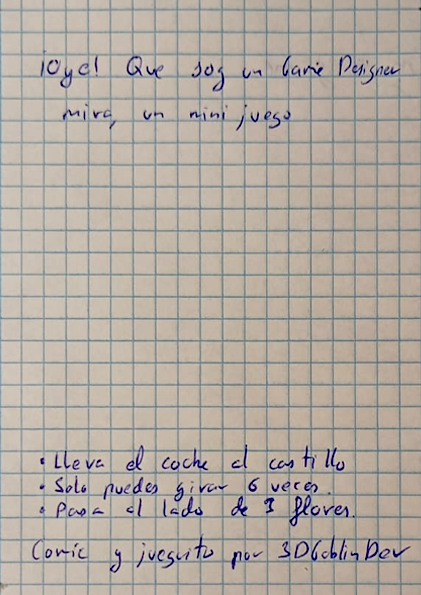 ¡Oye! Que soy un Game Designer
mira, un mini juego
• Lleva el coche al castillo
• Solo puedes girar 6 veces.
• Pasa al lado de 3 flores.
Comic y jueguito por 3DGoblinDev